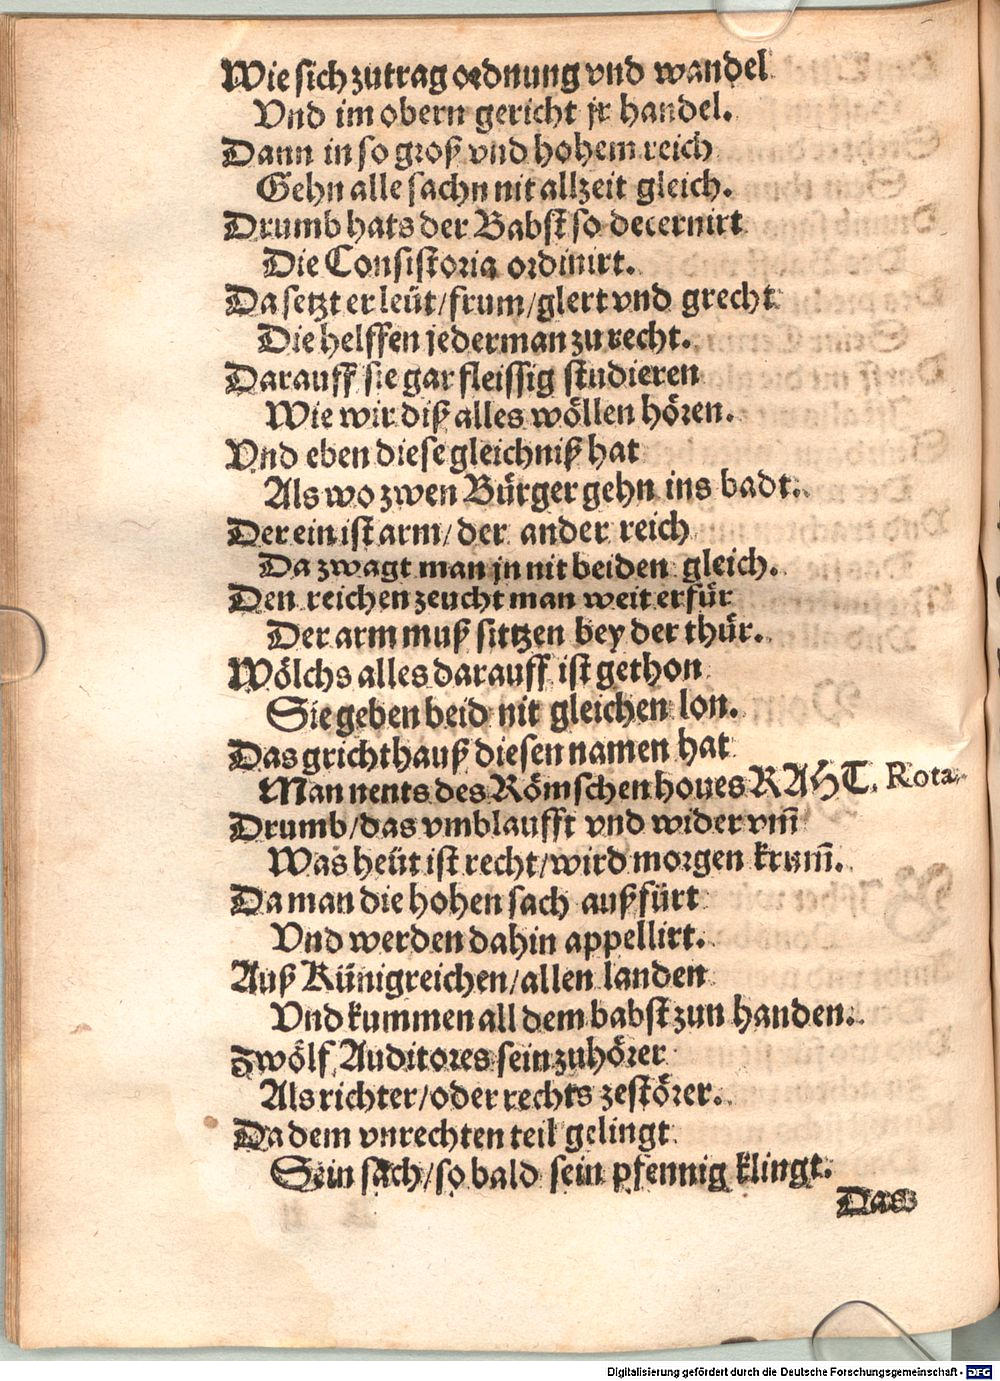 Wie sich zutrag ordnung vnd wandel
Vnd im obern gericht jr handel.
Dann in so groß vnd hohem reich
Gehn alle sachn nit allzeit gleich.
Drumb hats der Babst so decernirt
Die Consistoria ordinirt.
Da setzt er leüt/frum/glert vnd grecht
Die helffen jederman zu recht.
Darauff sie gar fleissig studieren
Wie wir diß alles wöllen hören.
Vnd eben diese gleichniß hat
Als wo zwen Bürger gehn ins badt.
Der ein ist arm/ der ander reich
Da zwagt man jn nit beiden gleich.
Den reichen zeucht man weit erfür
Der arm muß sittzen bey der thür.
Wölchs alles darauff ist gethon
Sie geben beid nit gleichen lon.
Das grichthauß diesen namen hat
Man nents des Römschen houes RAHT. Rota
Drumb/das vmblaufft vnd wider vm̄
Was heüt ist recht/wird morgen krum̄.
Da man die hohen sach außfürt
Vnd werden dahin appellirt.
Auß Künigreichen/allen landen
Vnd kummen all dem babst zun handen.
Zwölf Auditores sein zuhörer
Als richter/oder rechts zestörer.
Da dem vnrechten teil gelingt
Sein sach/so bald sein pfennig klingt.
Das
Digitalisierung gefördert durch die Deutsche Forschungsgemeinschaft - DFG